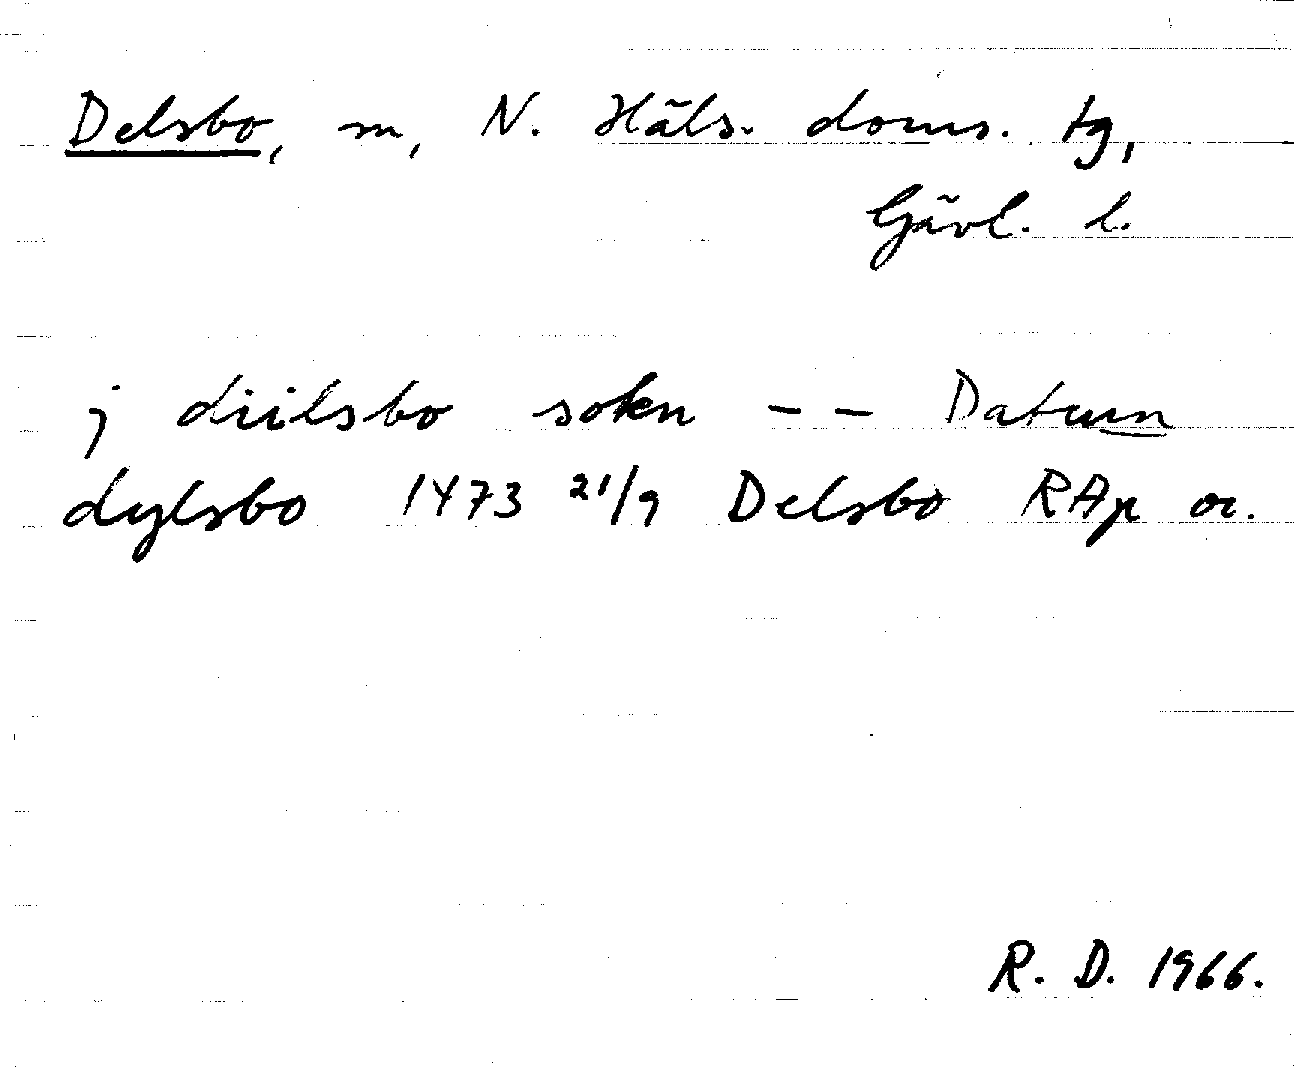 Delsbo, sn, N. Häls. doms. tg,
Gävl. l.
j diilsbo sokn - - Datum
dylsbo 1473 21/9 Delsbo RAp or.
R. D. 1966.